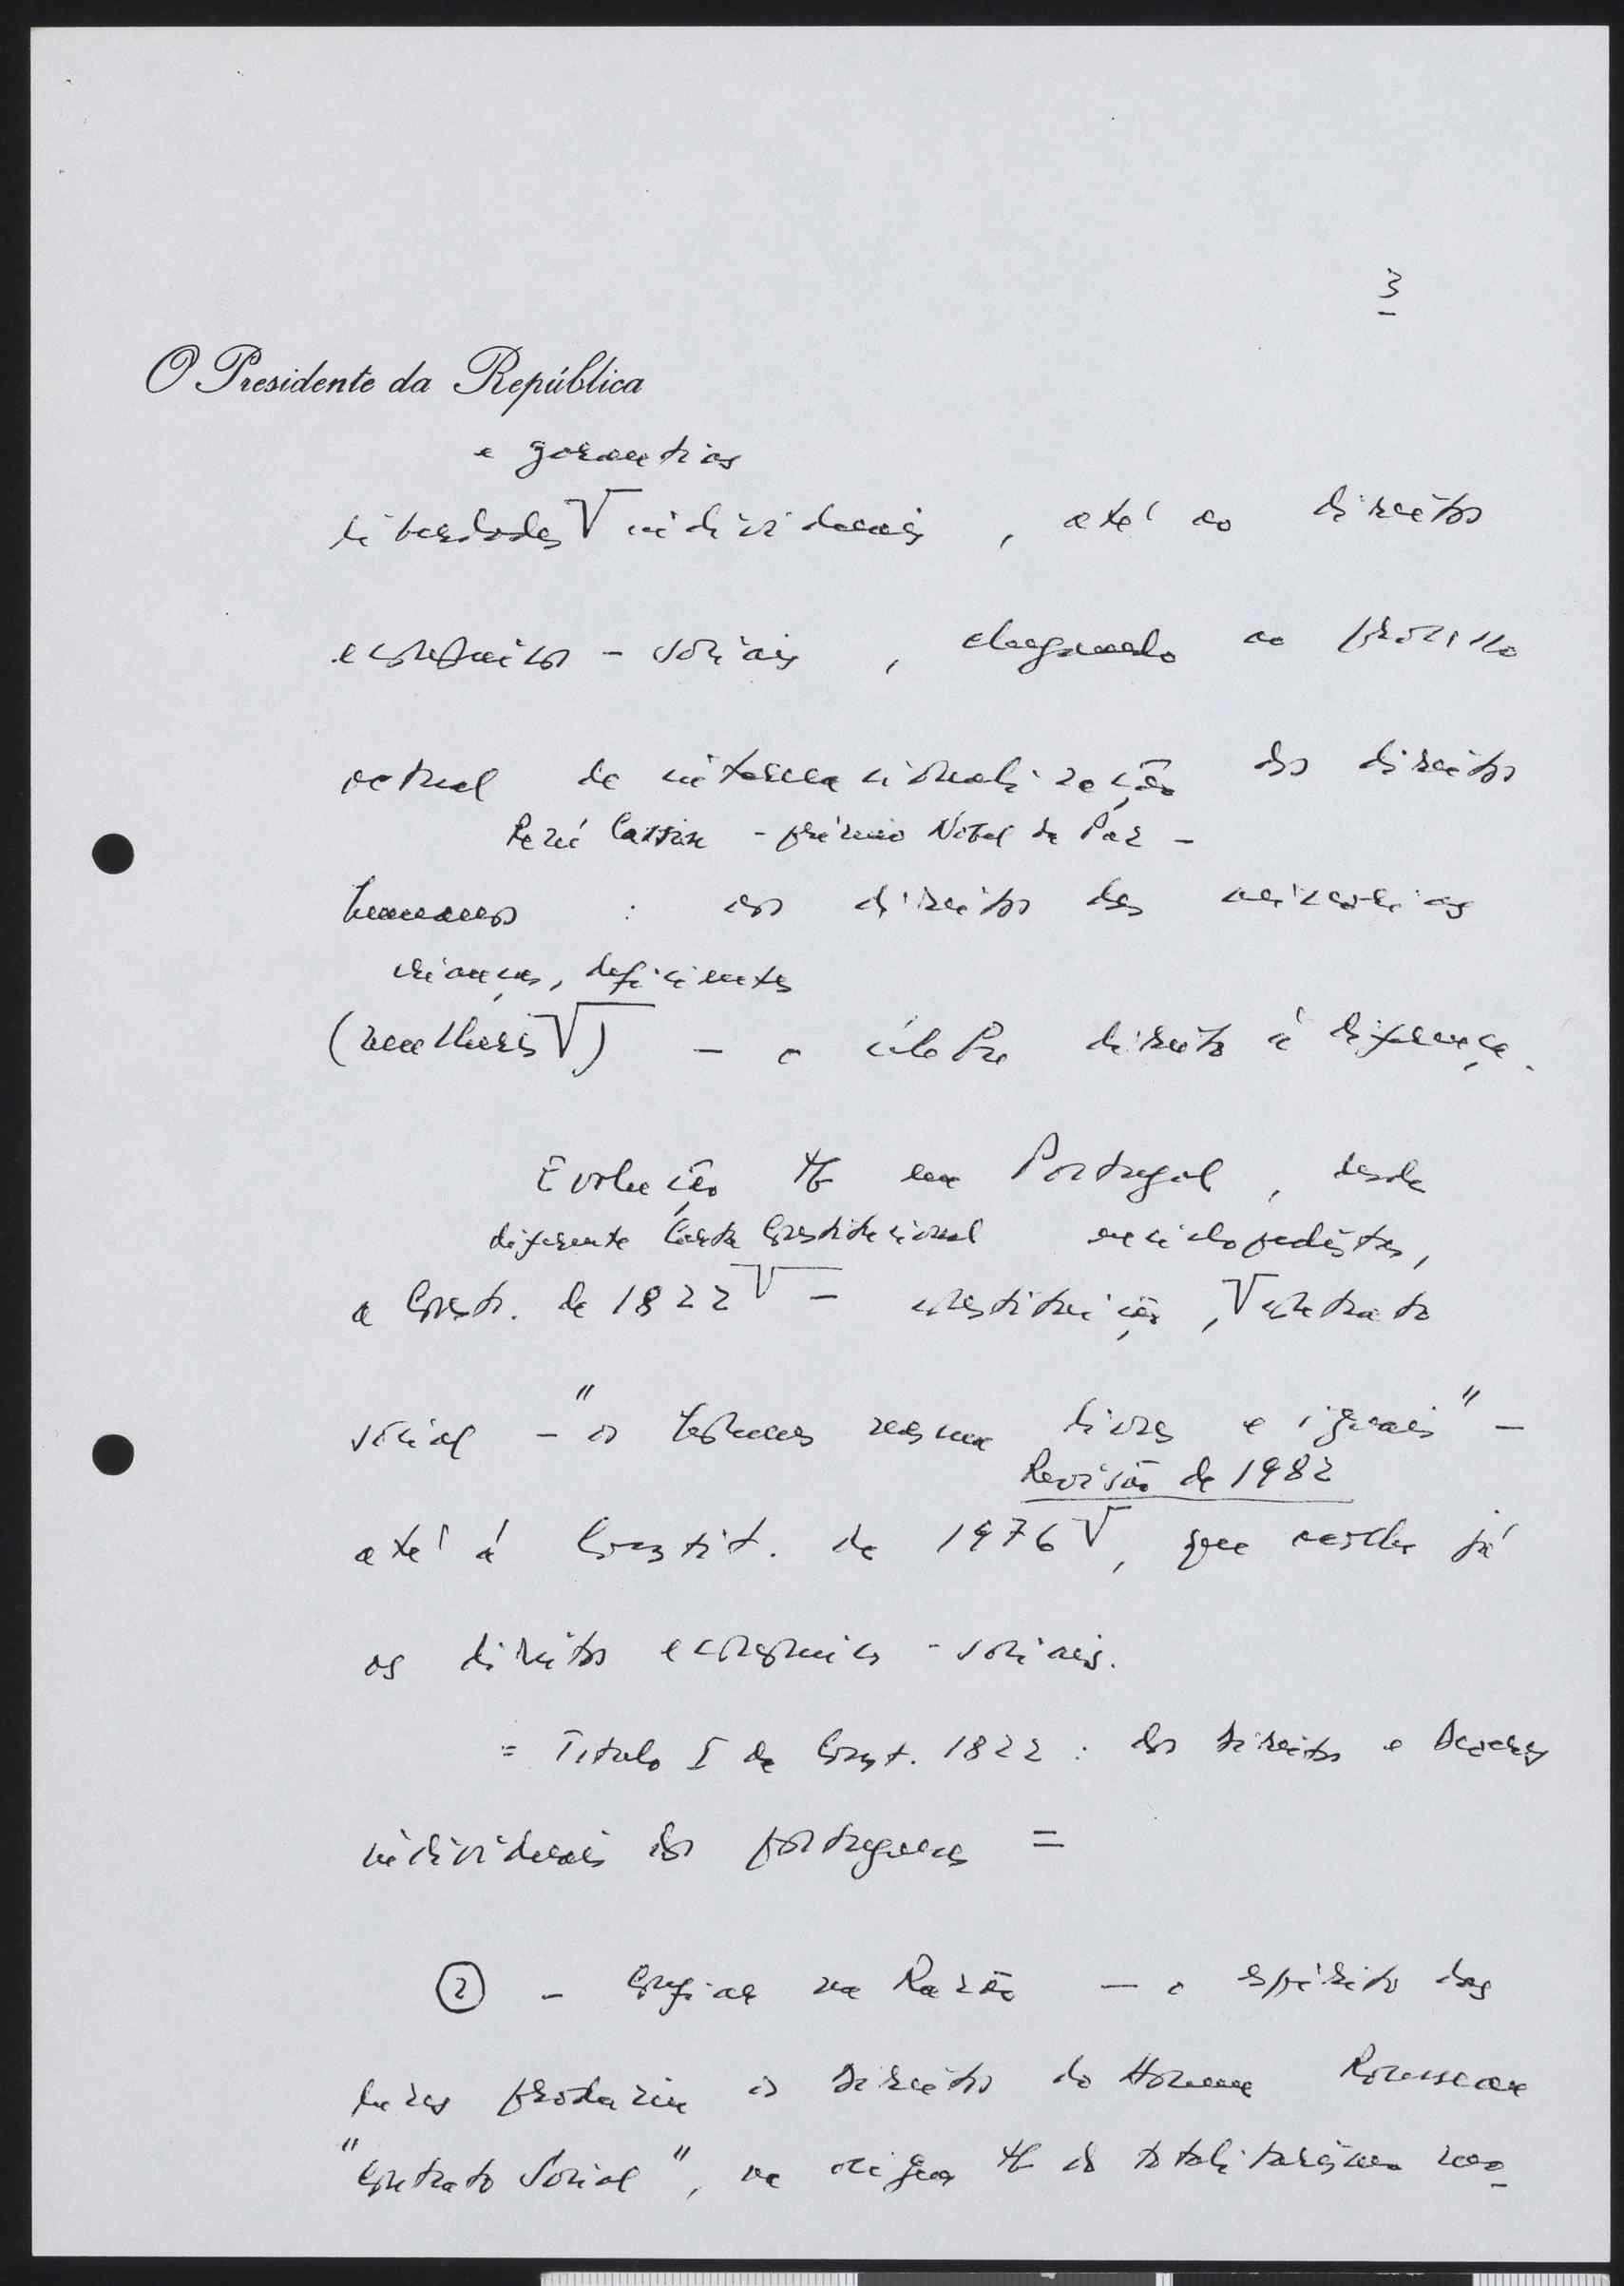 3
O Presidente da República
e garantias
liberdades V individuais, até ao direitos
económicos-sociais, chegando ao processo
actual de internacionalização dos direitos
René Cassin - prémio Nobel da Paz -
humanos : aos direitos das minorias
crianças, deficientes
(mulheres V) - o célebre direito à diferença.
Evolução tb em Portugal, desde
diferente Carta Constitucional enciclopedistas,
a Const. de 1822 V - constituição, V contrato
social - "os homens nascem livres e iguais" -
Revisão de 1982
até à Constit. de 1976 V, que acolhe já
os direitos económicos-sociais.
= Titulo I da Const. 1822 : dos Direitos e Deveres
individuais dos portugueses =
② - Confiar na Razão - o espírito das
luzes produziu os Direitos do Homem Rousseau
"Contrato Social", na origem tb do totalitarismo mo-